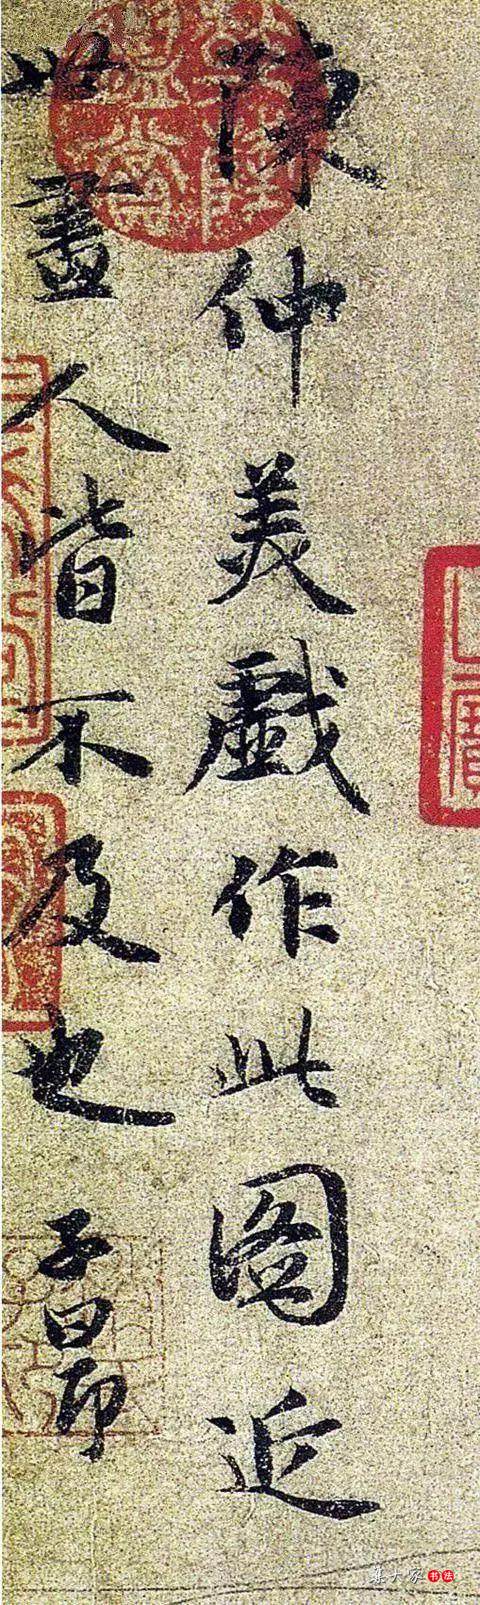 陳仲美戲作此圖近
世畫人皆不及也 子昂
集大家 书法